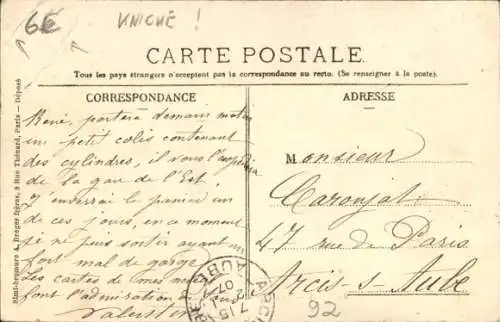 6€
UNIQUE !
CARTE POSTALE
Tous les pays étrangers n'acceptent pas la correspondance au recto. (Se renseigner à la poste).
CORRESPONDANCE
René, portera demain matin
un petit colis contenant
des cylindres, il vous l'expédiera
de la gare de l'Est.
J'enverrai le panier un
de ces jours, en ce moment
je ne puis sortir ayant
fort mal de gorge.
Les cartes de mes
font l'admiration de
Valentin
ADRESSE
Monsieur
Caronjat
47 rue de Paris
Arcis-s-Aube
92
AUBE
7 15
07
Simi-bromure A. Breger frères, 9 Rue Thénard, Paris — Déposé